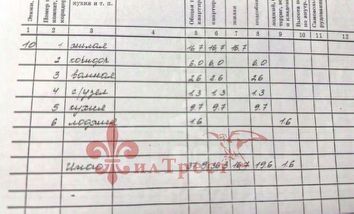 кухня и т. п.
1 2 3 4 5 6 7 8 9 10 11 12
10 1 жилая 16.7 16.7 16.7
2 коридор 6.0 6.0 6.0
3 ванная 2.6 2.6 2.6
4 с/узел 1.3 1.3 1.3
5 кухня 9.7 9.7 9.7
6 лоджия 1.6 1.6
Итого 37.9 36.3 16.7 19.6 1.6
ЖилТрест